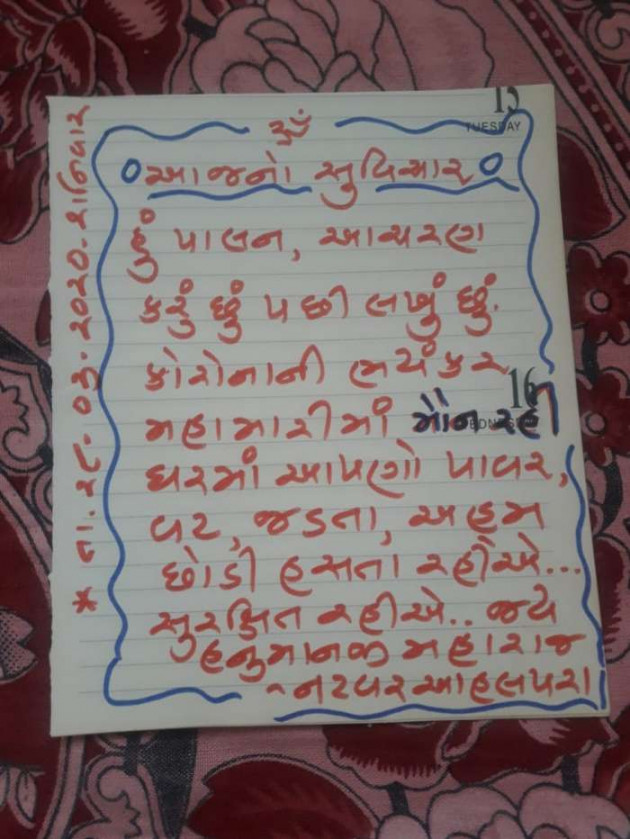 * તા. ૨૮. ૦૩. 2020. શનિવાર
15
TUESDAY
ૐ
આજનો સુવિચાર
હું પાલન, આચરણ
કરું છું પછી લખું છું.
કોરોનાની ભયંકર
16
મહામારીમાં મૌન રહી
ઘરમાં આપણો પાવર,
વટ, જડતા, અહમ
છોડી હસતા રહીએ...
સુરક્ષિત રહીએ.. જય
હનુમાનજી મહારાજ
~નટવર આહલપરા